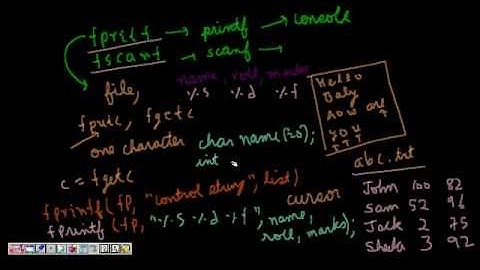 fprintf → printf → console
fscanf → scanf →
file,
name, roll, marks
%s %d %f
fputc, fgetc
one character
char name[20];
int
c = fgetc
Hello
Baby
How are
you
???
abc.txt
John 100 82
Sam 52 96
Jack 2 75
Sheela 3 92
fprintf(fp, "control string", list)
cursor
fprintf(fp, "%s %d %f", name,
roll, marks);